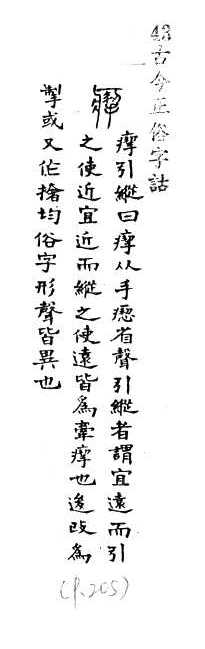 古今正俗字詁
引縱曰 从手 省聲引縱者謂宜遠而引
之使近宜近而縱之使遠皆為牽 也後改為
掣或又作 均俗字形聲皆異也
(P.205)